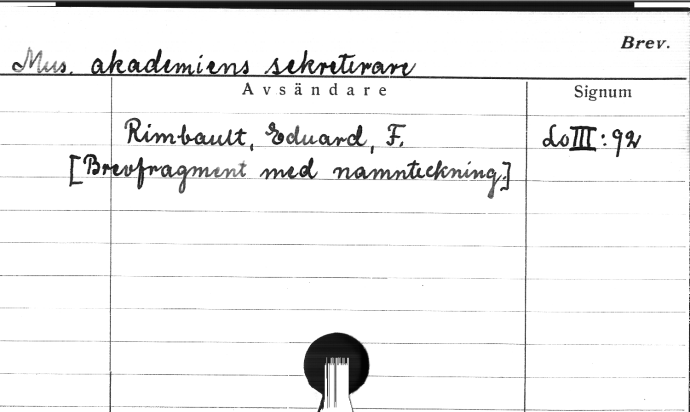 Brev.
Mus. akademiens sekreterare
Avsändare Signum
Rimbault, Eduard, F. Lo III: 92
[Brevfragment med namnteckning.]